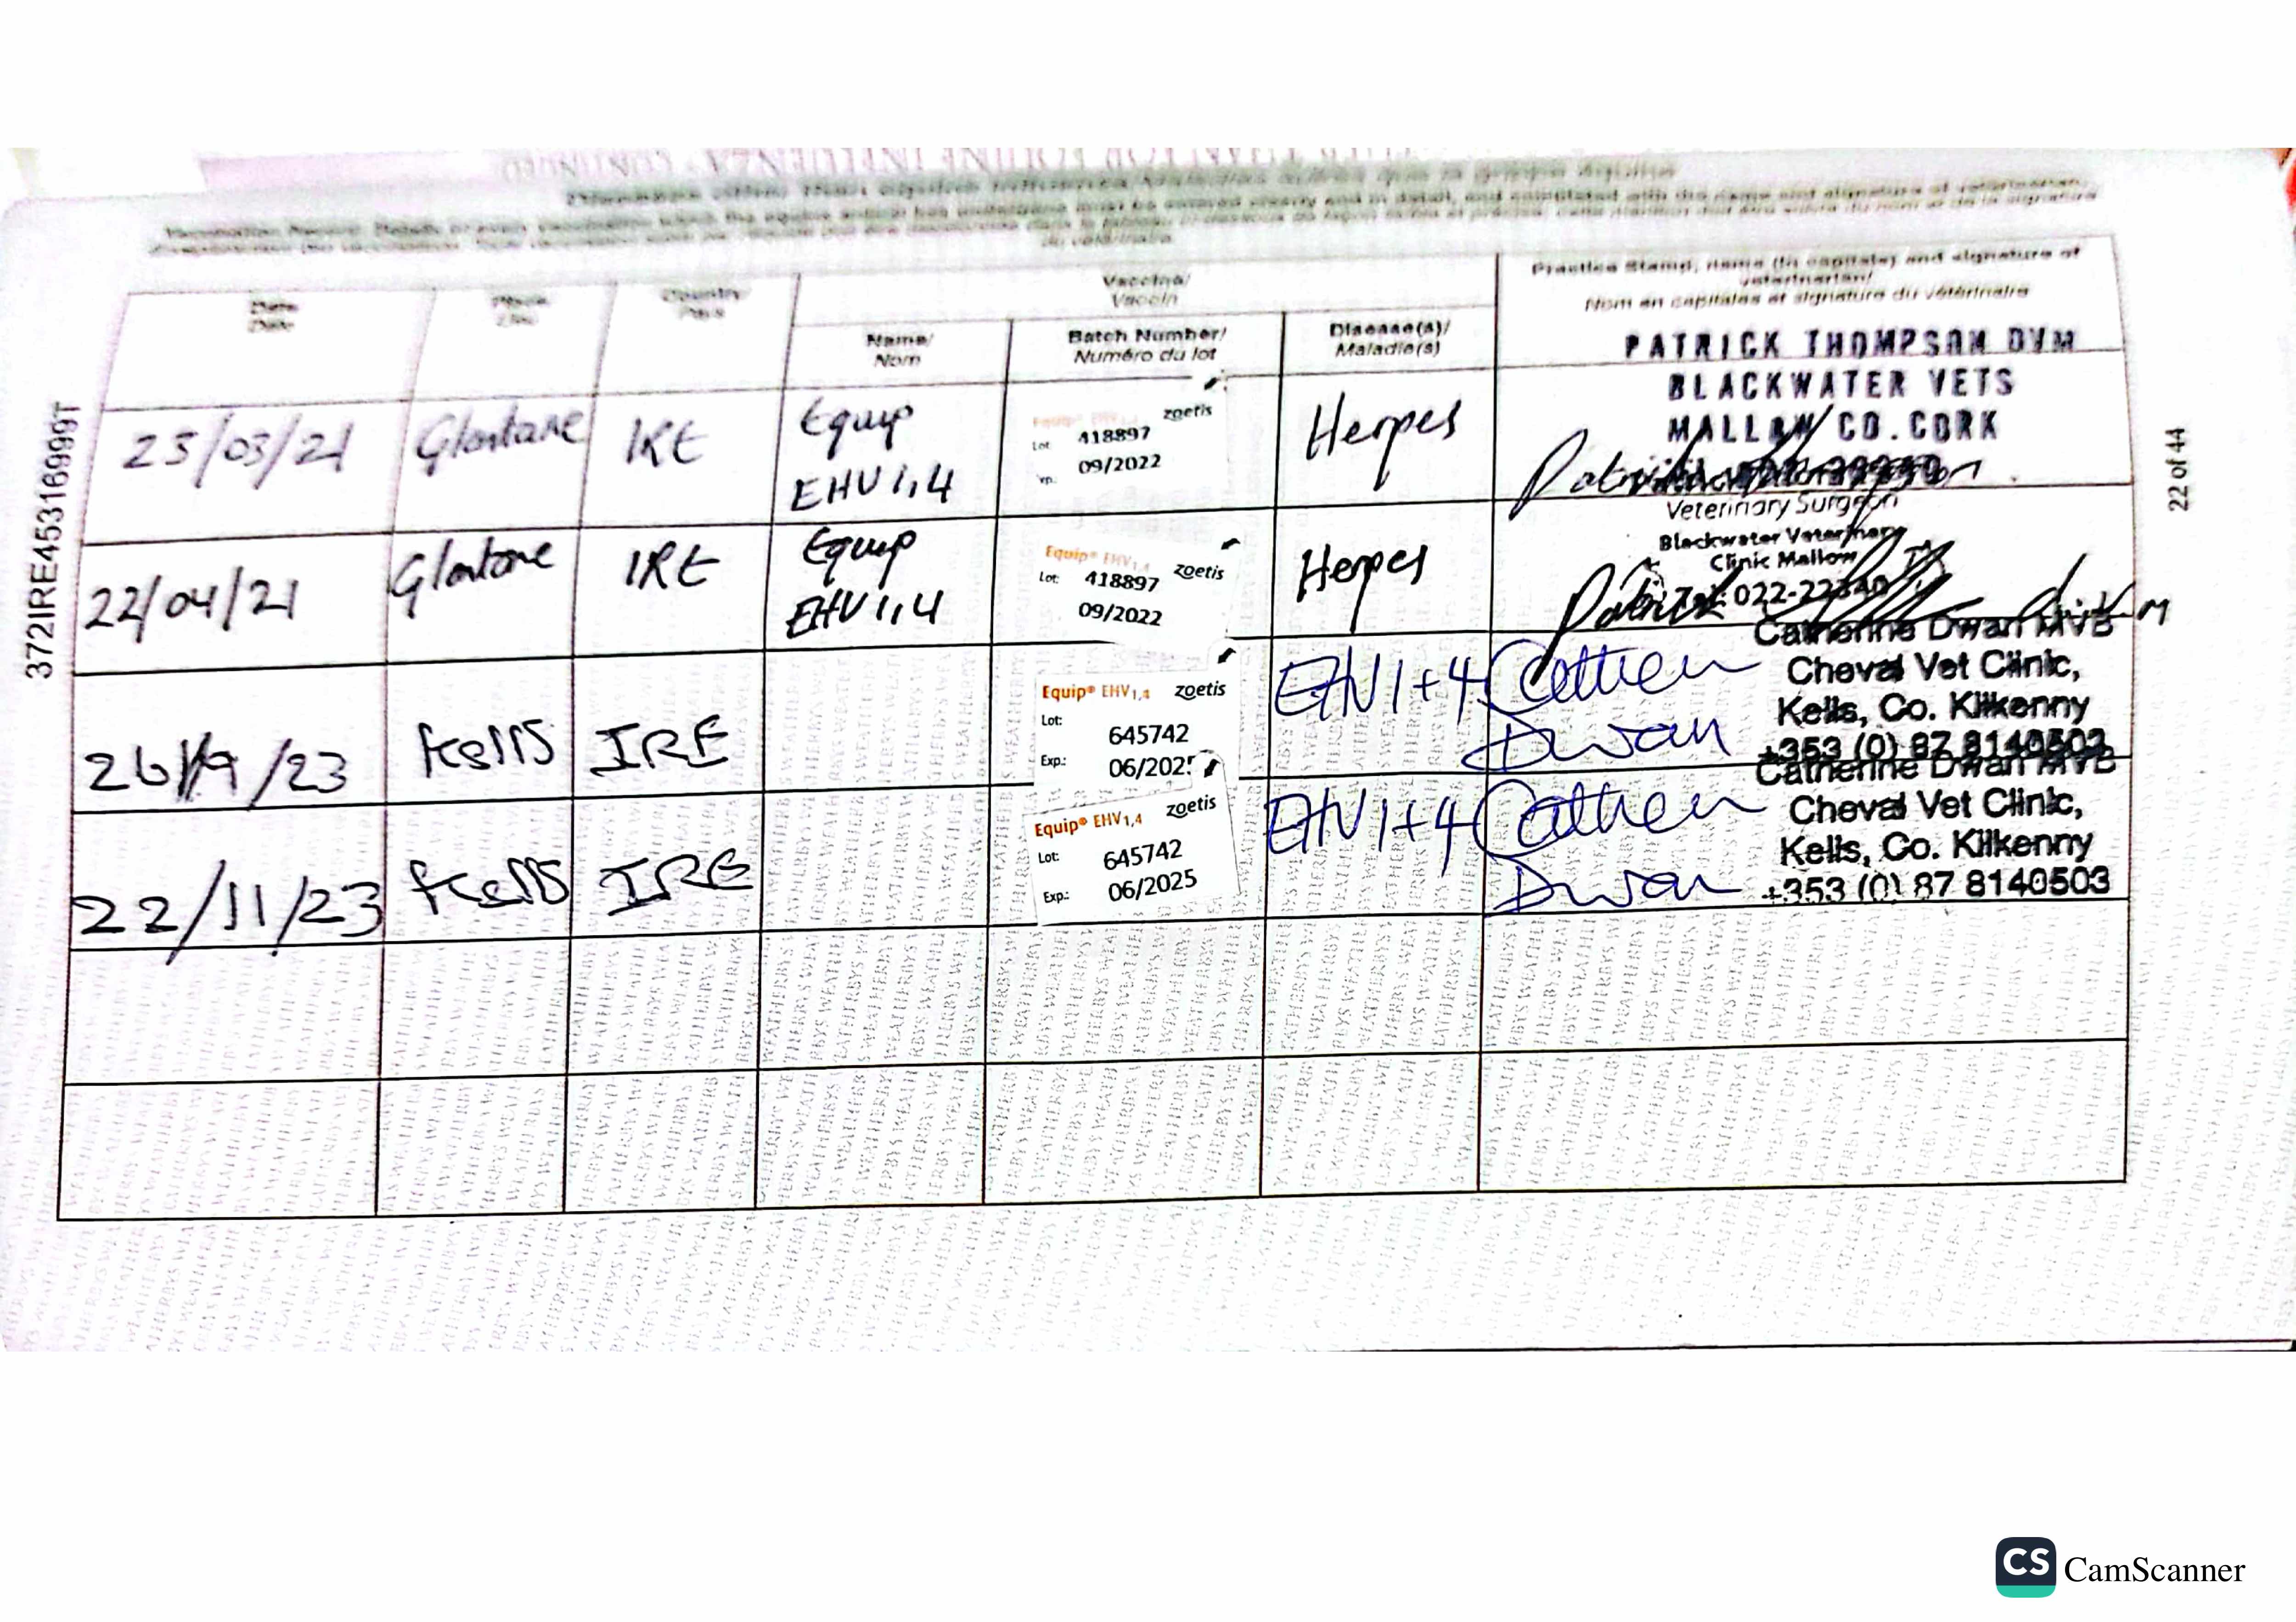 Diseases other than equine influenza
Vaccination Record. Details of every vaccination which the equine animal has undergone must be entered clearly and in detail, and completed with the name and signature of veterinarian.
du vétérinaire
Date Place Country Vaccine/
Vaccin
Practice Stamp, name (in capitals) and signature of
veterinarian/
Nom en capitales et signature du vétérinaire
Name/
Nom
Batch Number/
Numéro du lot
Disease(s)/
Maladie(s)
23/03/21 IRE Equip
EHV 1,4
Equip® EHV1,4 zoetis
Lot: 418897
09/2022
Herpes
PATRICK THOMPSON DVM
BLACKWATER VETS
MALLOW CO. CORK
22/04/21 IRE Equip
EHV 1,4
Equip® EHV1,4 zoetis
Lot: 418897
09/2022
Herpes
Veterinary Surgeon
Blackwater Veterinary
Clinic Mallow
Patrick
/9/23 Kells IRE
Equip® EHV1,4 zoetis
Lot: 645742
Exp.: 06/2025
EHV 1+4
Cathen
Dwan
Catherine Dwan MVB
Cheval Vet Clinic,
Kells, Co. Kilkenny
+353 (0) 87 8140503
22/11/23 Kells IRE
Equip® EHV1,4 zoetis
Lot: 645742
Exp.: 06/2025
EHV 1+4
Cathen
Dwan
Catherine Dwan MVB
Cheval Vet Clinic,
Kells, Co. Kilkenny
+353 (0) 87 8140503
372IRE45316999T
22 of 44
CS CamScanner